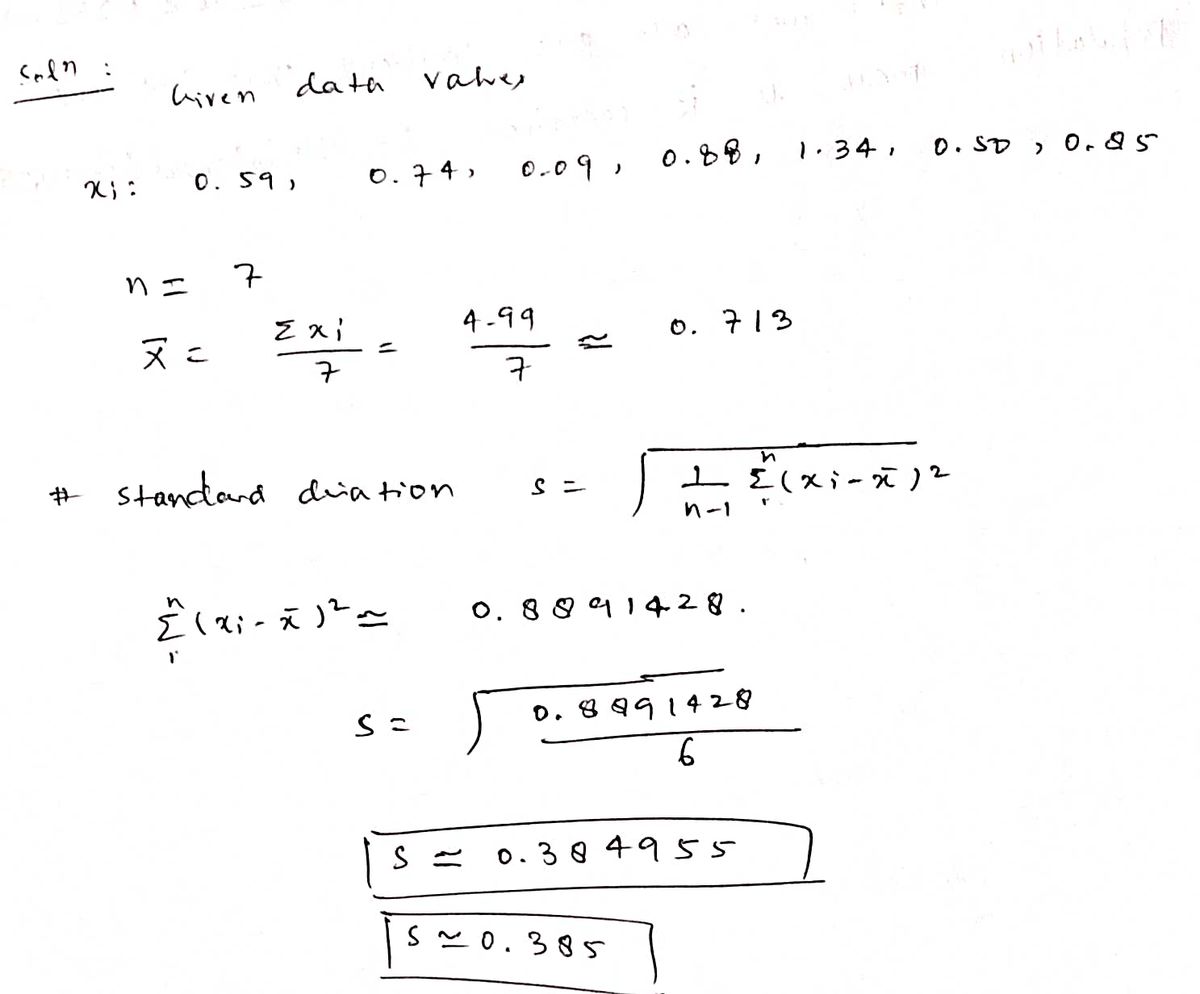 Soln :
Given data values
xi : 0.59, 0.74, 0.09, 0.88, 1.34, 0.50, 0.85
n = 7
x̄ = Σxi / 7 = 4.99 / 7 ≃ 0.713
# standard diation s = √(1/(n-1) Σ₁ⁿ (xi - x̄)²)
Σ₁ⁿ (xi - x̄)² ≃ 0.8891428.
s = √(0.8891428 / 6)
s ≃ 0.384955
s ≃ 0.385